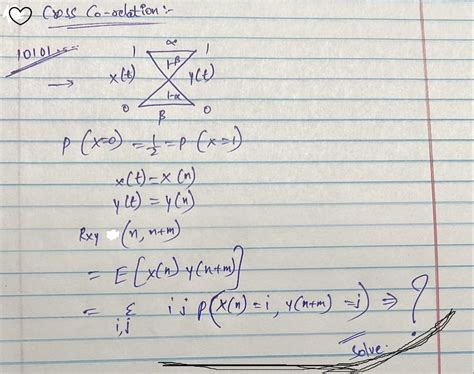 Cross Co-relation:-
10101....
1 α 1
x(t) 1-β y(t)
→ 1-α
0 β 0
P(x=0) = 1/2 = P(x=1)
x(t) = x(n)
y(t) = y(n)
Rxy (n, n+m)
= E[x(n) y(n+m)]
= Σ i j P(x(n) = i, y(n+m) = j) ⇒ ?
i,j
Solve.